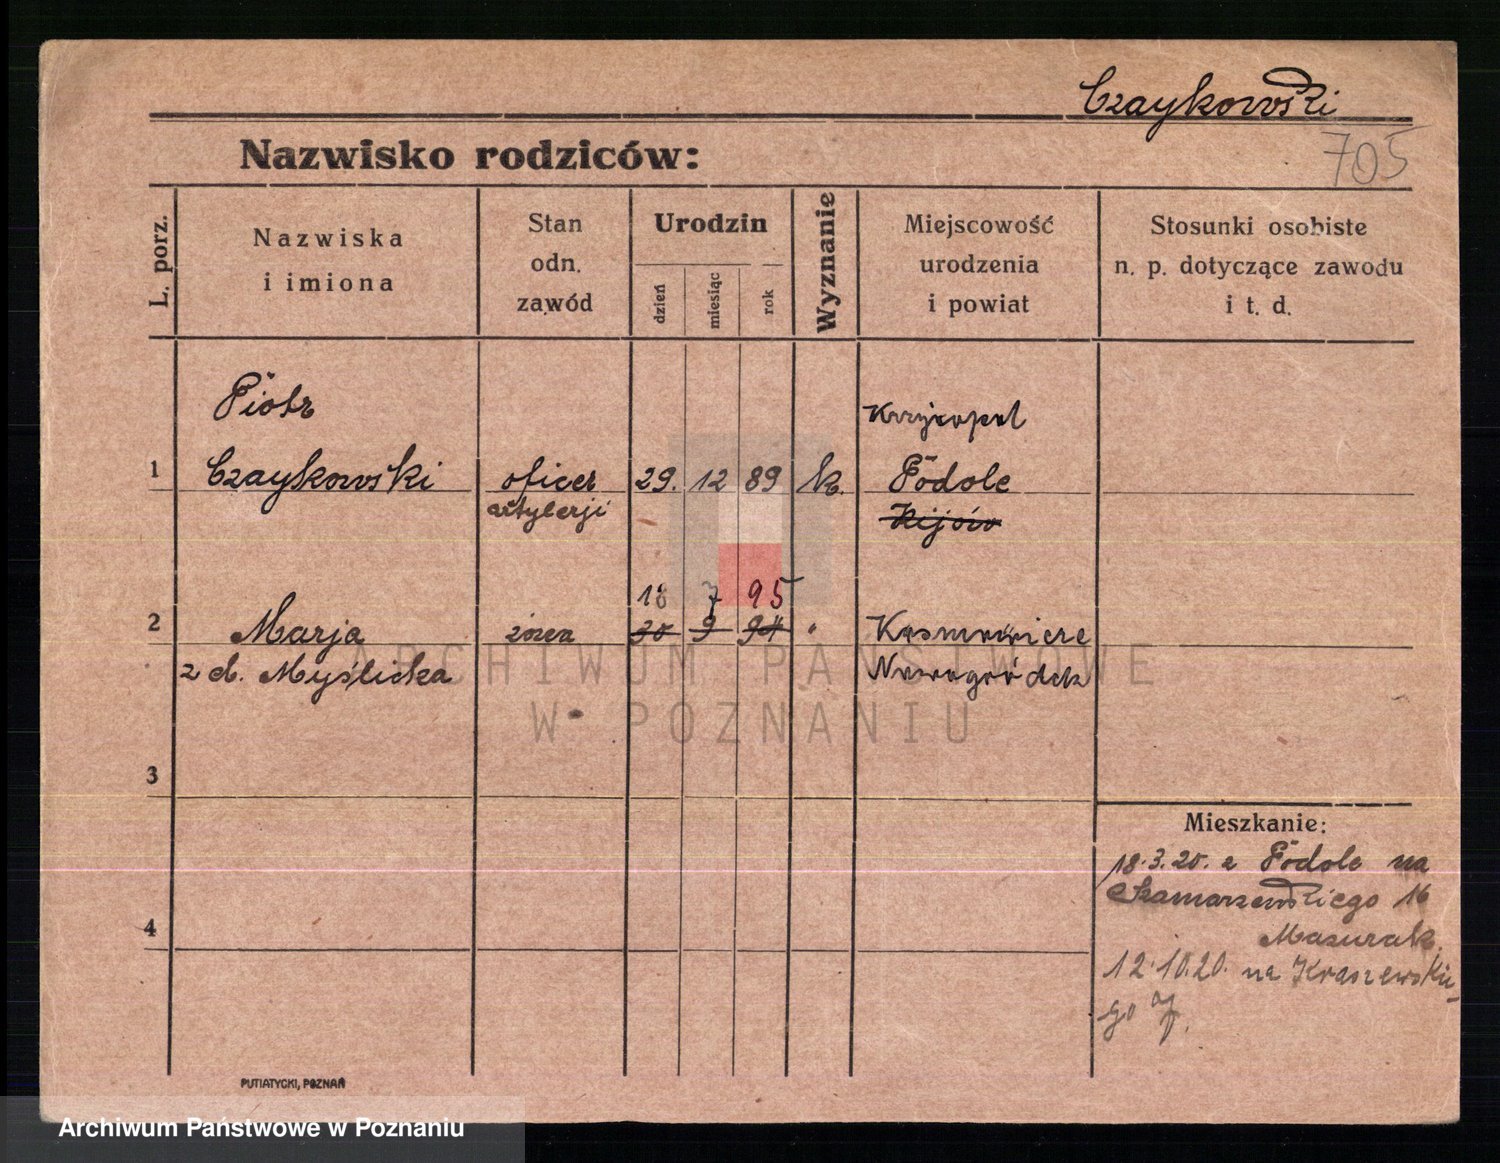 Czaykowski
705
Nazwisko rodziców:
L. porz.
Nazwiska
i imiona
Stan
odn.
zawód
Urodzin
dzień
miesiąc
rok
Wyznanie
Miejscowość
urodzenia
i powiat
Stosunki osobiste
n. p. dotyczące zawodu
i t. d.
Piotr
Krzyżopol
1
Czaykowski
oficer
29. 12 89
k.
Podole
artylerji
Kijów
18 7 95
2
Marja
żona
30 9 94
"
z d. Myślicka
Nowogródek
ARCHIWUM PAŃSTWOWE
W POZNANIU
3
4
Mieszkanie:
18.3.20. z Podole na
Szamarzewskiego 16
Mazurak.
12.10.20. na Kraszewskie-
go 7.
PUTIATYCKI, POZNAŃ
Archiwum Państwowe w Poznaniu